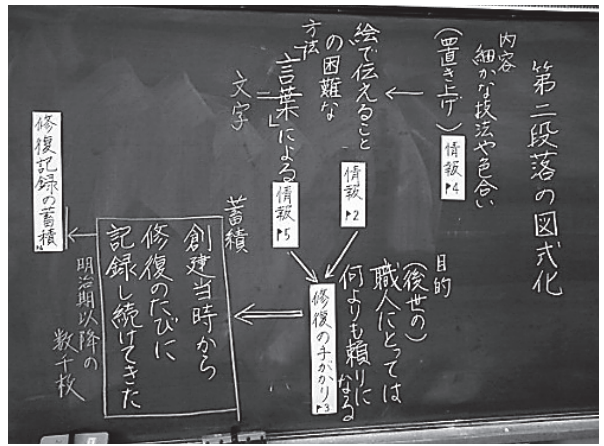 第二段落の図式化
内容
細かな技法や色合い
(置き上げ)
情報P4
絵で伝えること
の困難な
情報P2
方法
「言葉」による
情報P5
=
文字
目的
(後世の)
職人にとっては
何よりも頼りになる
修復の手がかりP3
蓄積
創建当時から
修復のたびに
記録し続けてきた
修復記録の蓄積
明治期以降の
数千枚